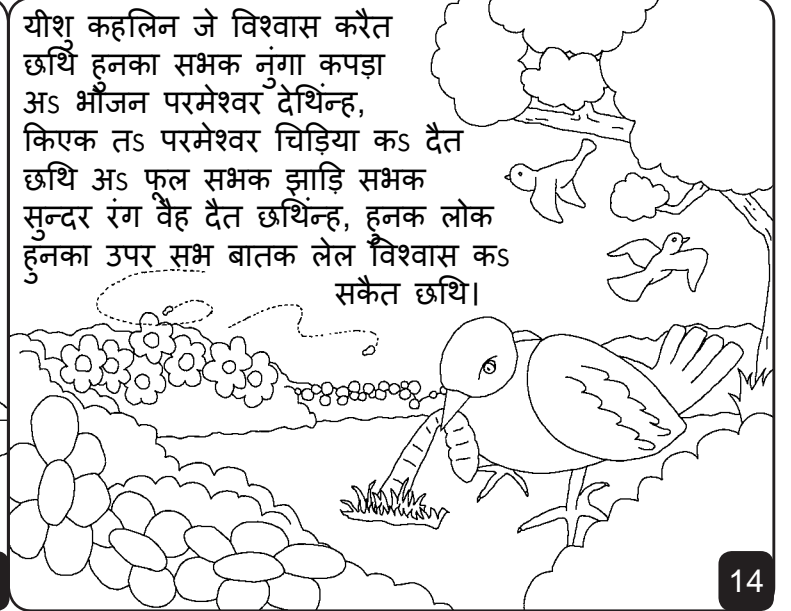 यीशु कहलिन जे विश्वास करैत
छथि हुनका सभक नुंगा कपड़ा
अऽ भोजन परमेश्वर देथिंन्ह,
किएक तऽ परमेश्वर चिड़िया कऽ दैत
छथि अऽ फूल सभक झाड़ि सभक
सुन्दर रंग वैह दैत छथिंन्ह, हुनक लोक
हुनका उपर सभ बातक लेल विश्वास कऽ
सकैत छथि।
14